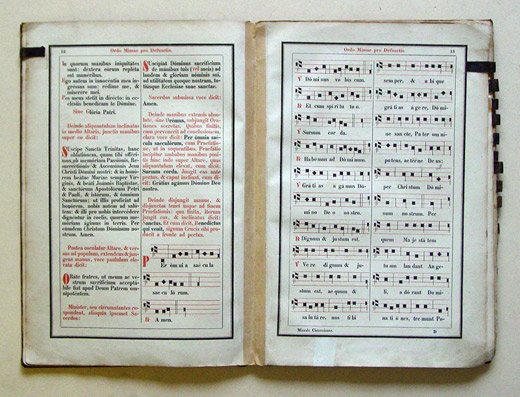 12
Ordo Missæ pro Defunctis.
In quorum manibus iniquitates
sunt: dextera eorum repleta
est muneribus.
Ego autem in innocentia mea in-
gressus sum: redime me, &
miserere mei.
Pes meus stetit in directo: in ec-
clesiis benedicam te Dómine.
Sine Glória Patri.
Deinde aliquantulum inclinatus
in medio Altaris, junctis manibus
super eo dicit:
Suscipe Sancta Trinitas, hanc
oblatiónem, quam tibi offéri-
mus, ob memóriam Passiónis, Re-
surrectiónis & Ascensiónis Jesu
Christi Dómini nostri: & in honó-
rem beátæ Maríæ semper Vír-
ginis, & beáti Joánnis Baptistæ,
& sanctórum Apostolórum Petri
& Pauli, & istórum, & ómnium
Sanctórum: ut illis profíciat ad
honórem, nobis autem ad salú-
tem: & illi pro nobis intercédere
dignéntur in cœlis, quorum me-
móriam ágimus in terris. Per
eúmdem Christum Dóminum no-
strum. Amen.
Postea osculatur Altare, & ver-
sus ad populum, extendens & jun-
gens manus, voce paululum elevata
dicit:
Oráte fratres, ut meum ac ve-
strum sacrifícium acceptá-
bile fiat apud Deum Patrem om-
nipoténtem.
Minister, seu circumstantes re-
spondent, alioquin ipsemet Sa-
cerdos:
Suscípiat Dóminus sacrifícium
de mánibus tuis (vel meis) ad
laudem & glóriam nóminis sui,
ad utilitátem quoque nostram, to-
tiúsque Ecclésiæ suæ sanctæ.
Sacerdos submissa voce dicit:
Amen.
Deinde manibus extensis absolu-
te, sine Orémus, subjungit Ora-
tiones secretas. Quibus finitis,
cum pervenerit ad conclusionem,
clara voce dicit: Per ómnia sæcula
sæculórum, cum Præfatio-
ne, ut in sequentibus. Præfatio
incipitur ambabus manibus posi-
tis hinc inde super Altare, quas
aliquantulum elevat, cum dicit:
Sursum corda. Jungit eas ante
pectus, & caput inclinat, cum di-
cit: Grátias agámus Dómino Deo
nostro.
Deinde disjungit manus, &
disjunctas tenet usque ad finem
Præfationis: qua finita, iterum
jungit eas, & inclinatus dicit:
Sanctus. Et cum dicit, Benedíctus
qui venit, signum Crucis sibi pro-
ducit a fronte ad pectus.
Per óm ni a sæ cu la
sæ cu ló rum.
℟ A men.
Ordo Missæ pro Defunctis.
13
℣ Dó mi nus vo bis cum.
℟ Et cum spí ri tu tu o.
℣ Sursum cor da.
℟ Ha bé mus ad Dó mi num.
℣ Grá ti as a gá mus Dó-
mi no De o no stro.
℟ Dignum & justum est.
Ve re dignum & ju-
stum est, æ quum &
sa lu tá re, nos ti bi
semper, & u bí que
grá ti as á ge re, Dó mi-
ne san cte, Pa ter om ní-
po tens, æ tér ne De us:
per Chri stum Dómi-
num no strum. Per
quem Ma je stá tem
tu am lau dant An ge-
li, a dó rant Do mi-
na ti ó nes, tre munt Po-
Missale Curenianum.
B